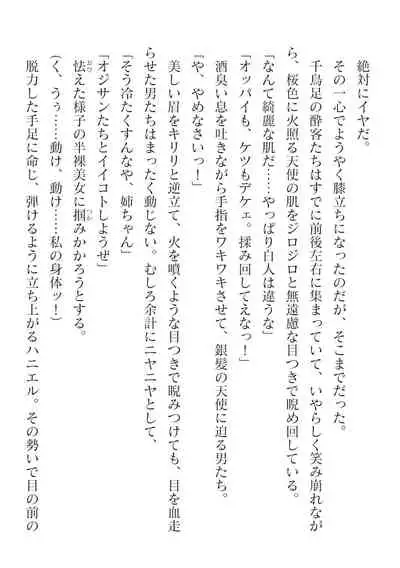 絶対にイヤだ。
その一心でようやく膝立ちになったのだが、そこまでだった。
千鳥足の酔客たちはすでに前後左右に集まっていて、いやらしく笑み崩れなが
ら、桜色に火照る天使の肌をジロジロと無遠慮な目つきで睨め回している。
「なんて綺麗な肌だ……やっぱり白人は違うな」
「オッパイも、ケツもデケェ。揉み回してえなっ！」
酒臭い息を吐きながら手指をワキワキさせて、銀髪の天使に迫る男たち。
「や、やめなさいっ！」
美しい眉をキリリと逆立て、火を噴くような目つきで睨みつけても、目を血走
らせた男たちはまったく動じない。むしろ余計にニヤニヤとして、
「そう冷たくすんなや、姉ちゃん」
「オジサンたちとイイコトしようぜ」
怯えた様子の半裸美女に掴みかかろうとする。
（く、うぅ……動け、動け……私の身体ッ！）
脱力した手足に命じ、弾けるように立ち上がるハニエル。その勢いで目の前の